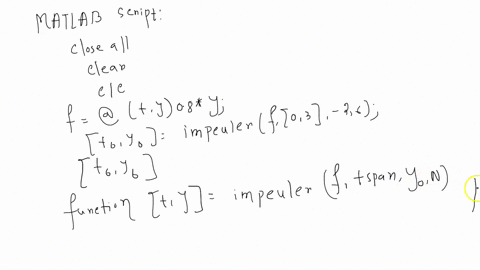 MATLAB script:
close all
clear
clc
f = @ (t,y) 0.8* y;
[t6, y6] = impeuler (f, [0, 3], -2, 6);
[t6, y6]
function [t, y] = impeuler (f, tspan, y0, N)